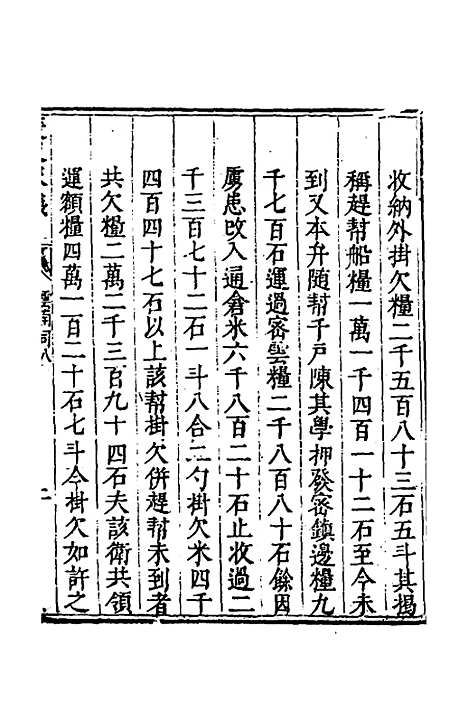 收納外掛欠糧二千五百八十三石五斗其揭
稱趕幫船糧一萬一千四百一十二石至今未
到又本弁随幫千戸陳其學押發密鎮邊糧九
千七百石運過密雲糧二千八百八十石餘因
虜患改入通倉米六千八百二十石止收過二
千三百七十二石一斗八合二勺掛欠米四千
四百四十七石以上該幫掛欠併趕幫未到者
共欠糧二萬二千三百九十四石夫該衛共領
運額糧四萬一百二十石七斗今掛欠如許之